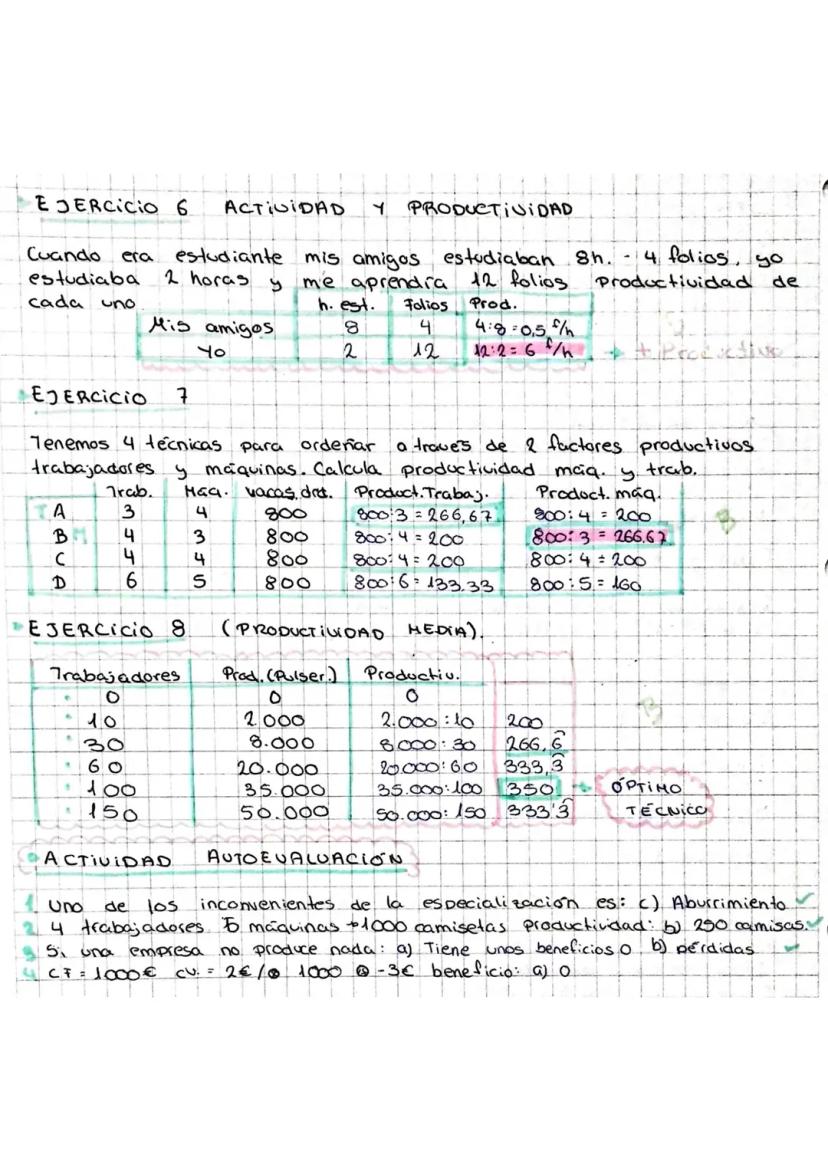 EJERCICIO 6 ACTIVIDAD Y PRODUCTIVIDAD
Cuando era estudiante mis amigos estudiaban 8h. - 4 folios, yo
estudiaba 2 horas y me aprendía 12 folios productividad de
cada uno
h. est. Folios Prod.
Mis amigos 8 4 4:8=0,5 f/h
Yo 2 12 12:2=6 f/h → + Productivo
EJERCICIO 7
Tenemos 4 técnicas para ordeñar a través de 2 factores productivos
trabajadores y máquinas. Calcula productividad máq. y trab.
Trab. Máq. vacas, ord. Product. Trabaj. Product. máq.
T A 3 4 800 800:3=266,67 800:4=200
B M 4 3 800 800:4=200 800:3=266,67
C 4 4 800 800:4=200 800:4=200
D 6 5 800 800:6=133.33 800:5=160
B
EJERCICIO 8 (PRODUCTIVIDAD MEDIA).
Trabajadores Prod. (Pulser.) Productiv.
0 0 0
10 2000 2.000:10 200
30 8.000 8000:30 266,6̂
60 20.000 20000:60 333,3̂
100 35.000 35.000:100 350 → ÓPTIMO
150 50.000 50.000:150 333'3̂ TÉCNICO
B
ACTIVIDAD AUTOEVALUACIÓN
1 Uno de los inconvenientes de la especialización es: c) Aburrimiento ✓
2 4 trabajadores 5 máquinas →1000 camisetas productividad: b) 250 camisas. ✓
3 Si una empresa no produce nada: a) Tiene unos beneficios 0 b) pérdidas ✓
4 CF = 1000€ CU. = 2€/ 1000 -3€ beneficio: a) 0